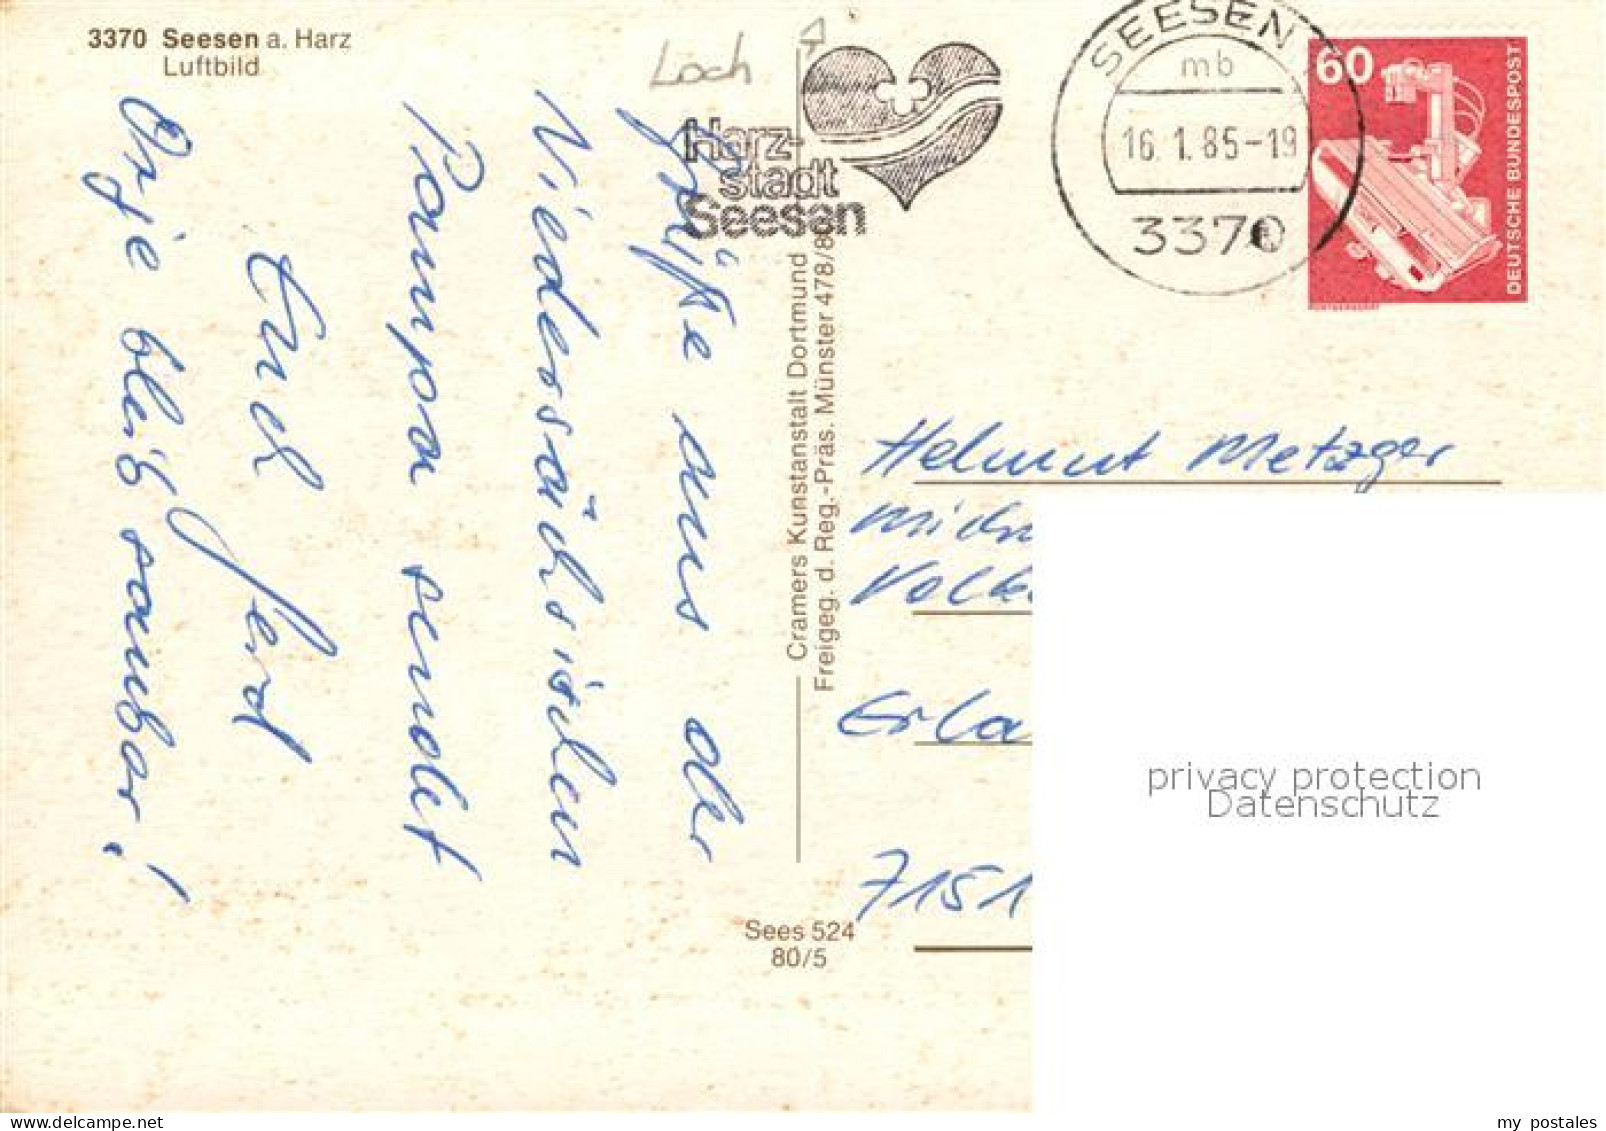 3370 Seesen a. Harz
Luftbild
Loch
Harz-
stadt
Seesen
SEESEN
mb
16.1.85-19
3370
60
DEUTSCHE BUNDESPOST
Grüße aus der
Niedersächsischen
Pampa sendet
Euch Gerd
Orje bleib sauber!
Cramers Kunstanstalt Dortmund
Freigeg. d. Reg.-Präs. Münster 478/8
Helmut Metzger
Mich
Volk
Erla
7151
Sees 524
80/5
privacy protection
Datenschutz
my postales